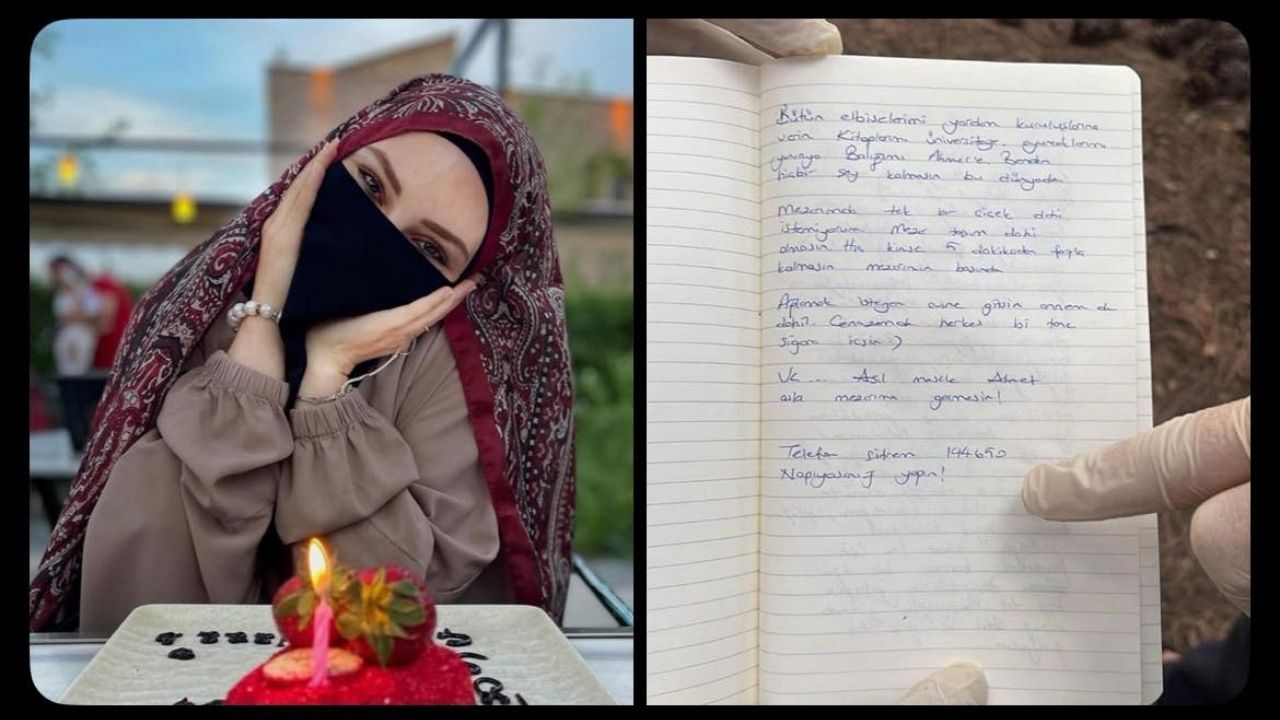 Bütün elbiselerimi yardım kuruluşlarına
verin Kitaplarımı üniversiteye, oyuncaklarımı
yuvaya Balığımı Ahmet'e Benden
hiçbir şey kalmasın bu dünyada
Mezarımda tek bir çiçek dahi
istemiyorum Mezar taşım dahi
olmasın Hiç kimse 5 dakikadan fazla
kalmasın mezarımın başında
Ağlamak isteyen evine gitsin annem de
dahil. Cenazemde herkes bi tane
sigara içsin :)
Ve .... Asıl mesele Ahmet
asla mezarıma gelmesin!
Telefon şifrem 144650
Napıyosanız yapın!